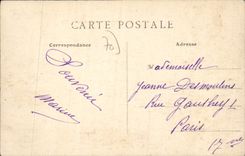 CARTE POSTALE
Correspondance
Adresse
70
Souvenir
Marine
Mademoiselle
Jeanne Desmoulins
Rue Gauthey
Paris
17 me